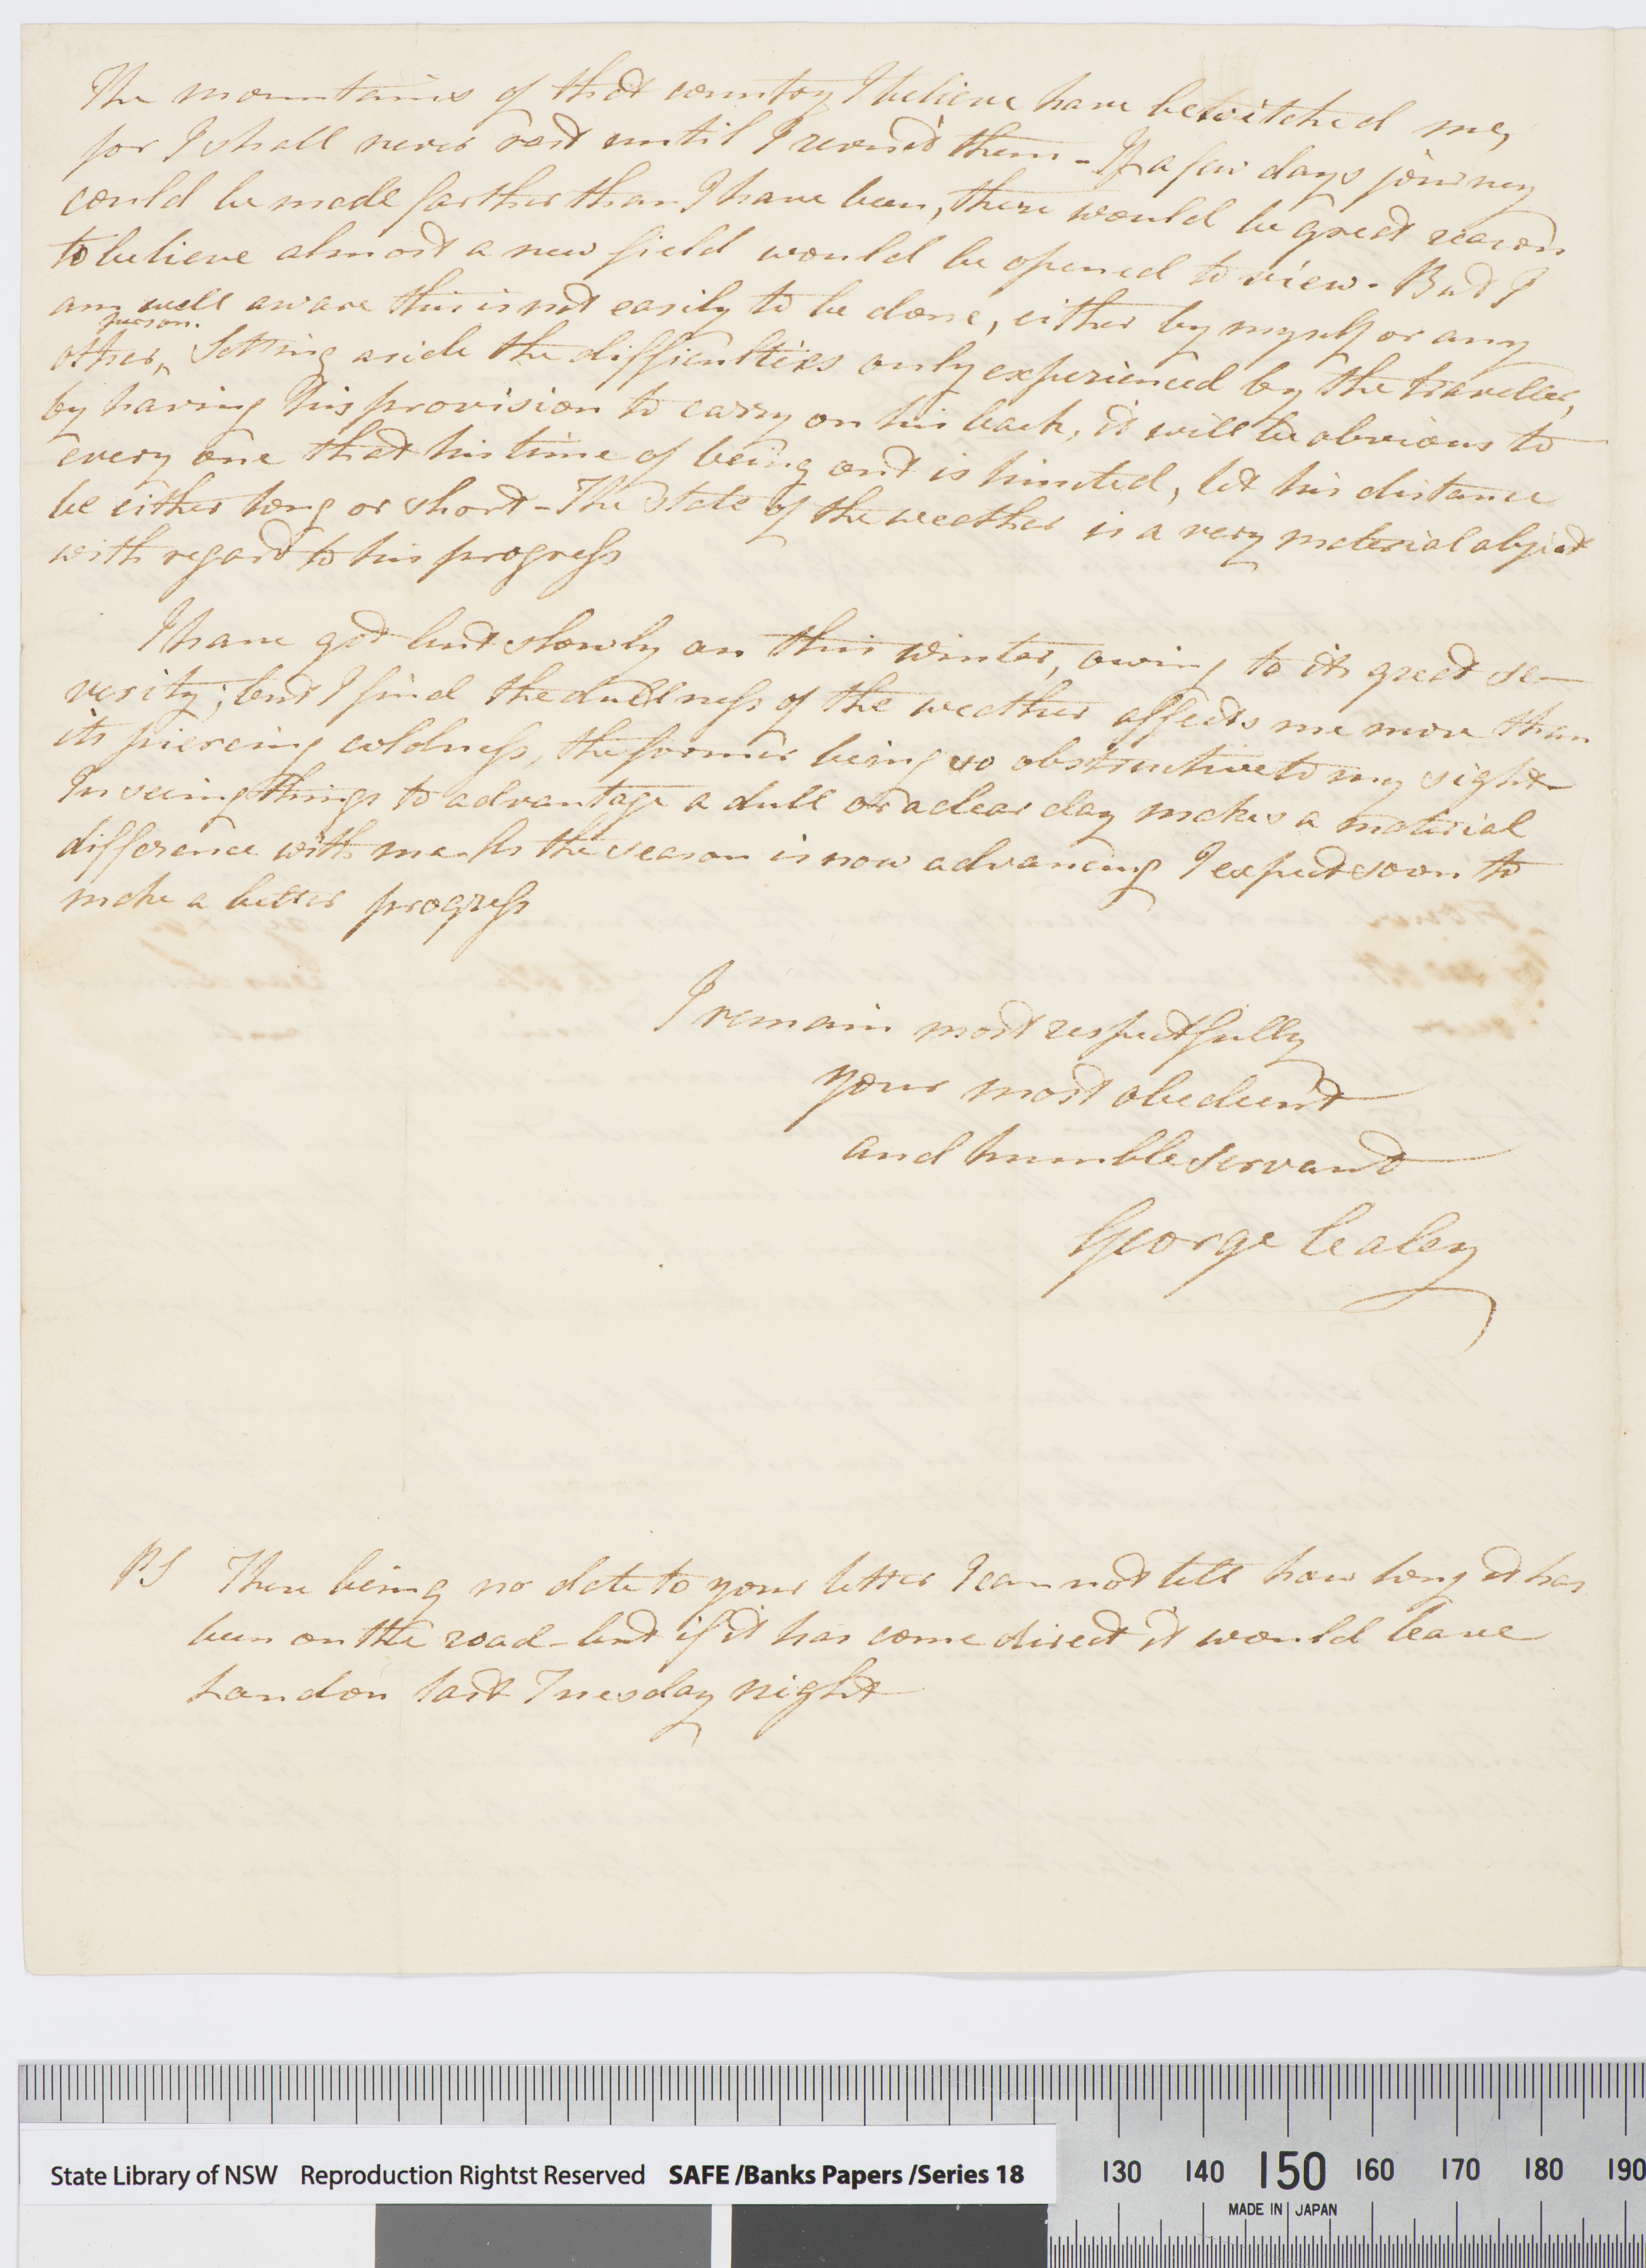 The mountains of that country I believe have bewitched me,
for I shall never rest until I revisit them - If a few days journey
could be made farther than I have been, there would be great reason
to believe almost a new field would be opened to view. But I
am well aware this is not easily to be done, either by myself or any
person.
other, Setting aside the difficulties only experienced by the traveller,
by having his provision to carry on his back, it will be obvious to
every one that his time of being out is limited, let his distance
be either long or short - The state of the weather is a very material object
with regard to his progress
I have got but slowly on this winter, owing to its great se-
verity; but I find the dullness of the weather affects me more than
its piercing coldness, the former being so obstructive to my sight
In seeing things to advantage a dull or a clear day makes a material
difference with me - As the season is now advancing I expect soon to
make a better progress
I remain most respectfully
your most obedient
and humble servant
George Caley
PS There being no date to your letter I cannot tell how long it has
been on the road - but if it has come direct it would leave
London last Tuesday night
State Library of NSW Reproduction Rightst Reserved SAFE /Banks Papers /Series 18
130 140 150 160 170 180 190
MADE IN JAPAN